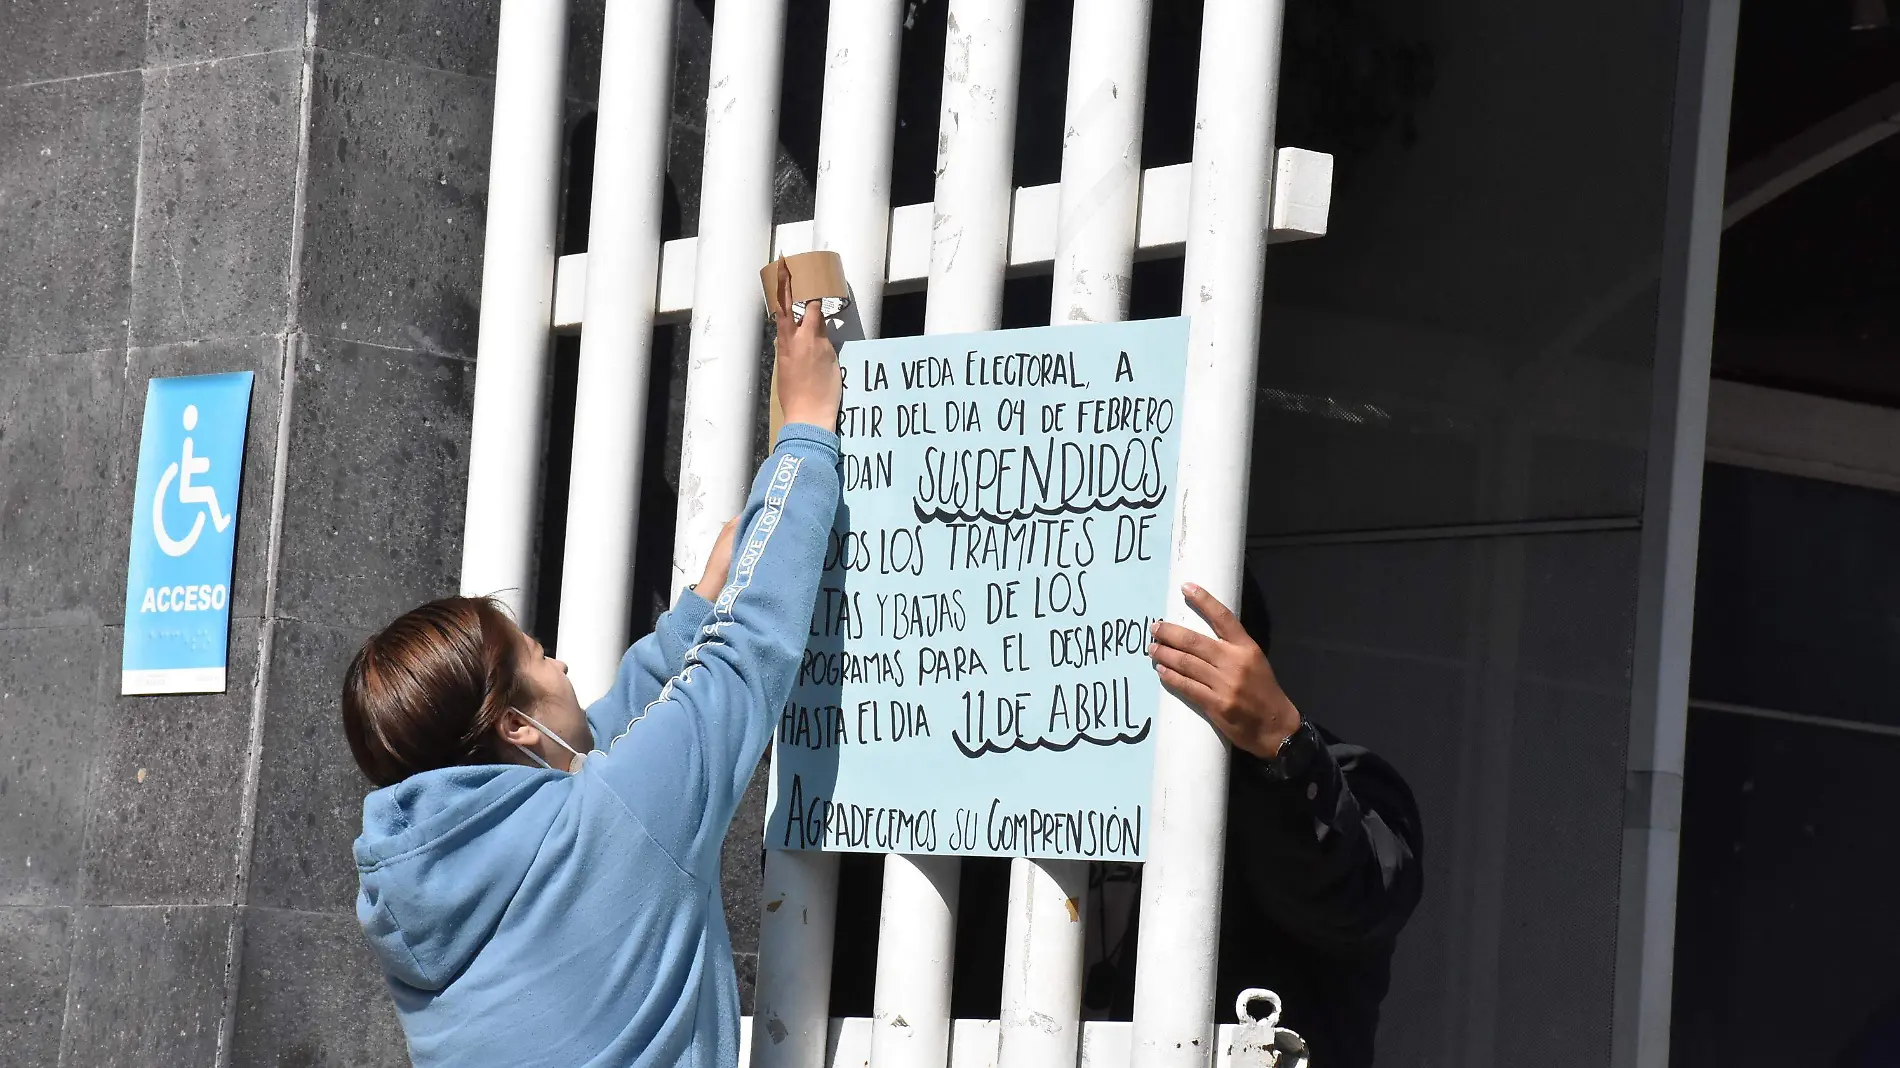 ACCESO
LOVE LOVE LOVE LOVE
R LA VEDA ELECTORAL, A
RTIR DEL DIA 04 DE FEBRERO
EDAN SUSPENDIDOS
DOS LOS TRAMITES DE
LTAS Y BAJAS DE LOS
ROGRAMAS PARA EL DESARROLL
HASTA EL DIA 11 DE ABRIL
AGRADECEMOS SU COMPRENSIÓN